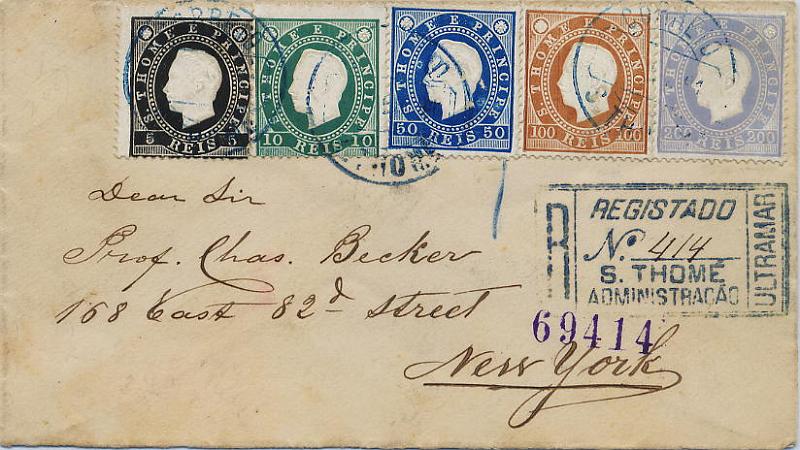 S. THOME E PRINCIPE
5 REIS 5
S. THOME E PRINCIPE
10 REIS 10
S. THOME E PRINCIPE
50 REIS 50
S. THOME E PRINCIPE
100 REIS 100
S. THOME E PRINCIPE
200 REIS 200
CORREIO
Dear Sir
Prof. Chas. Becker
168 East 82d street
New York
R
REGISTADO
No. 414
S. THOMÉ
ADMINISTRAÇÃO
ULTRAMAR
69414